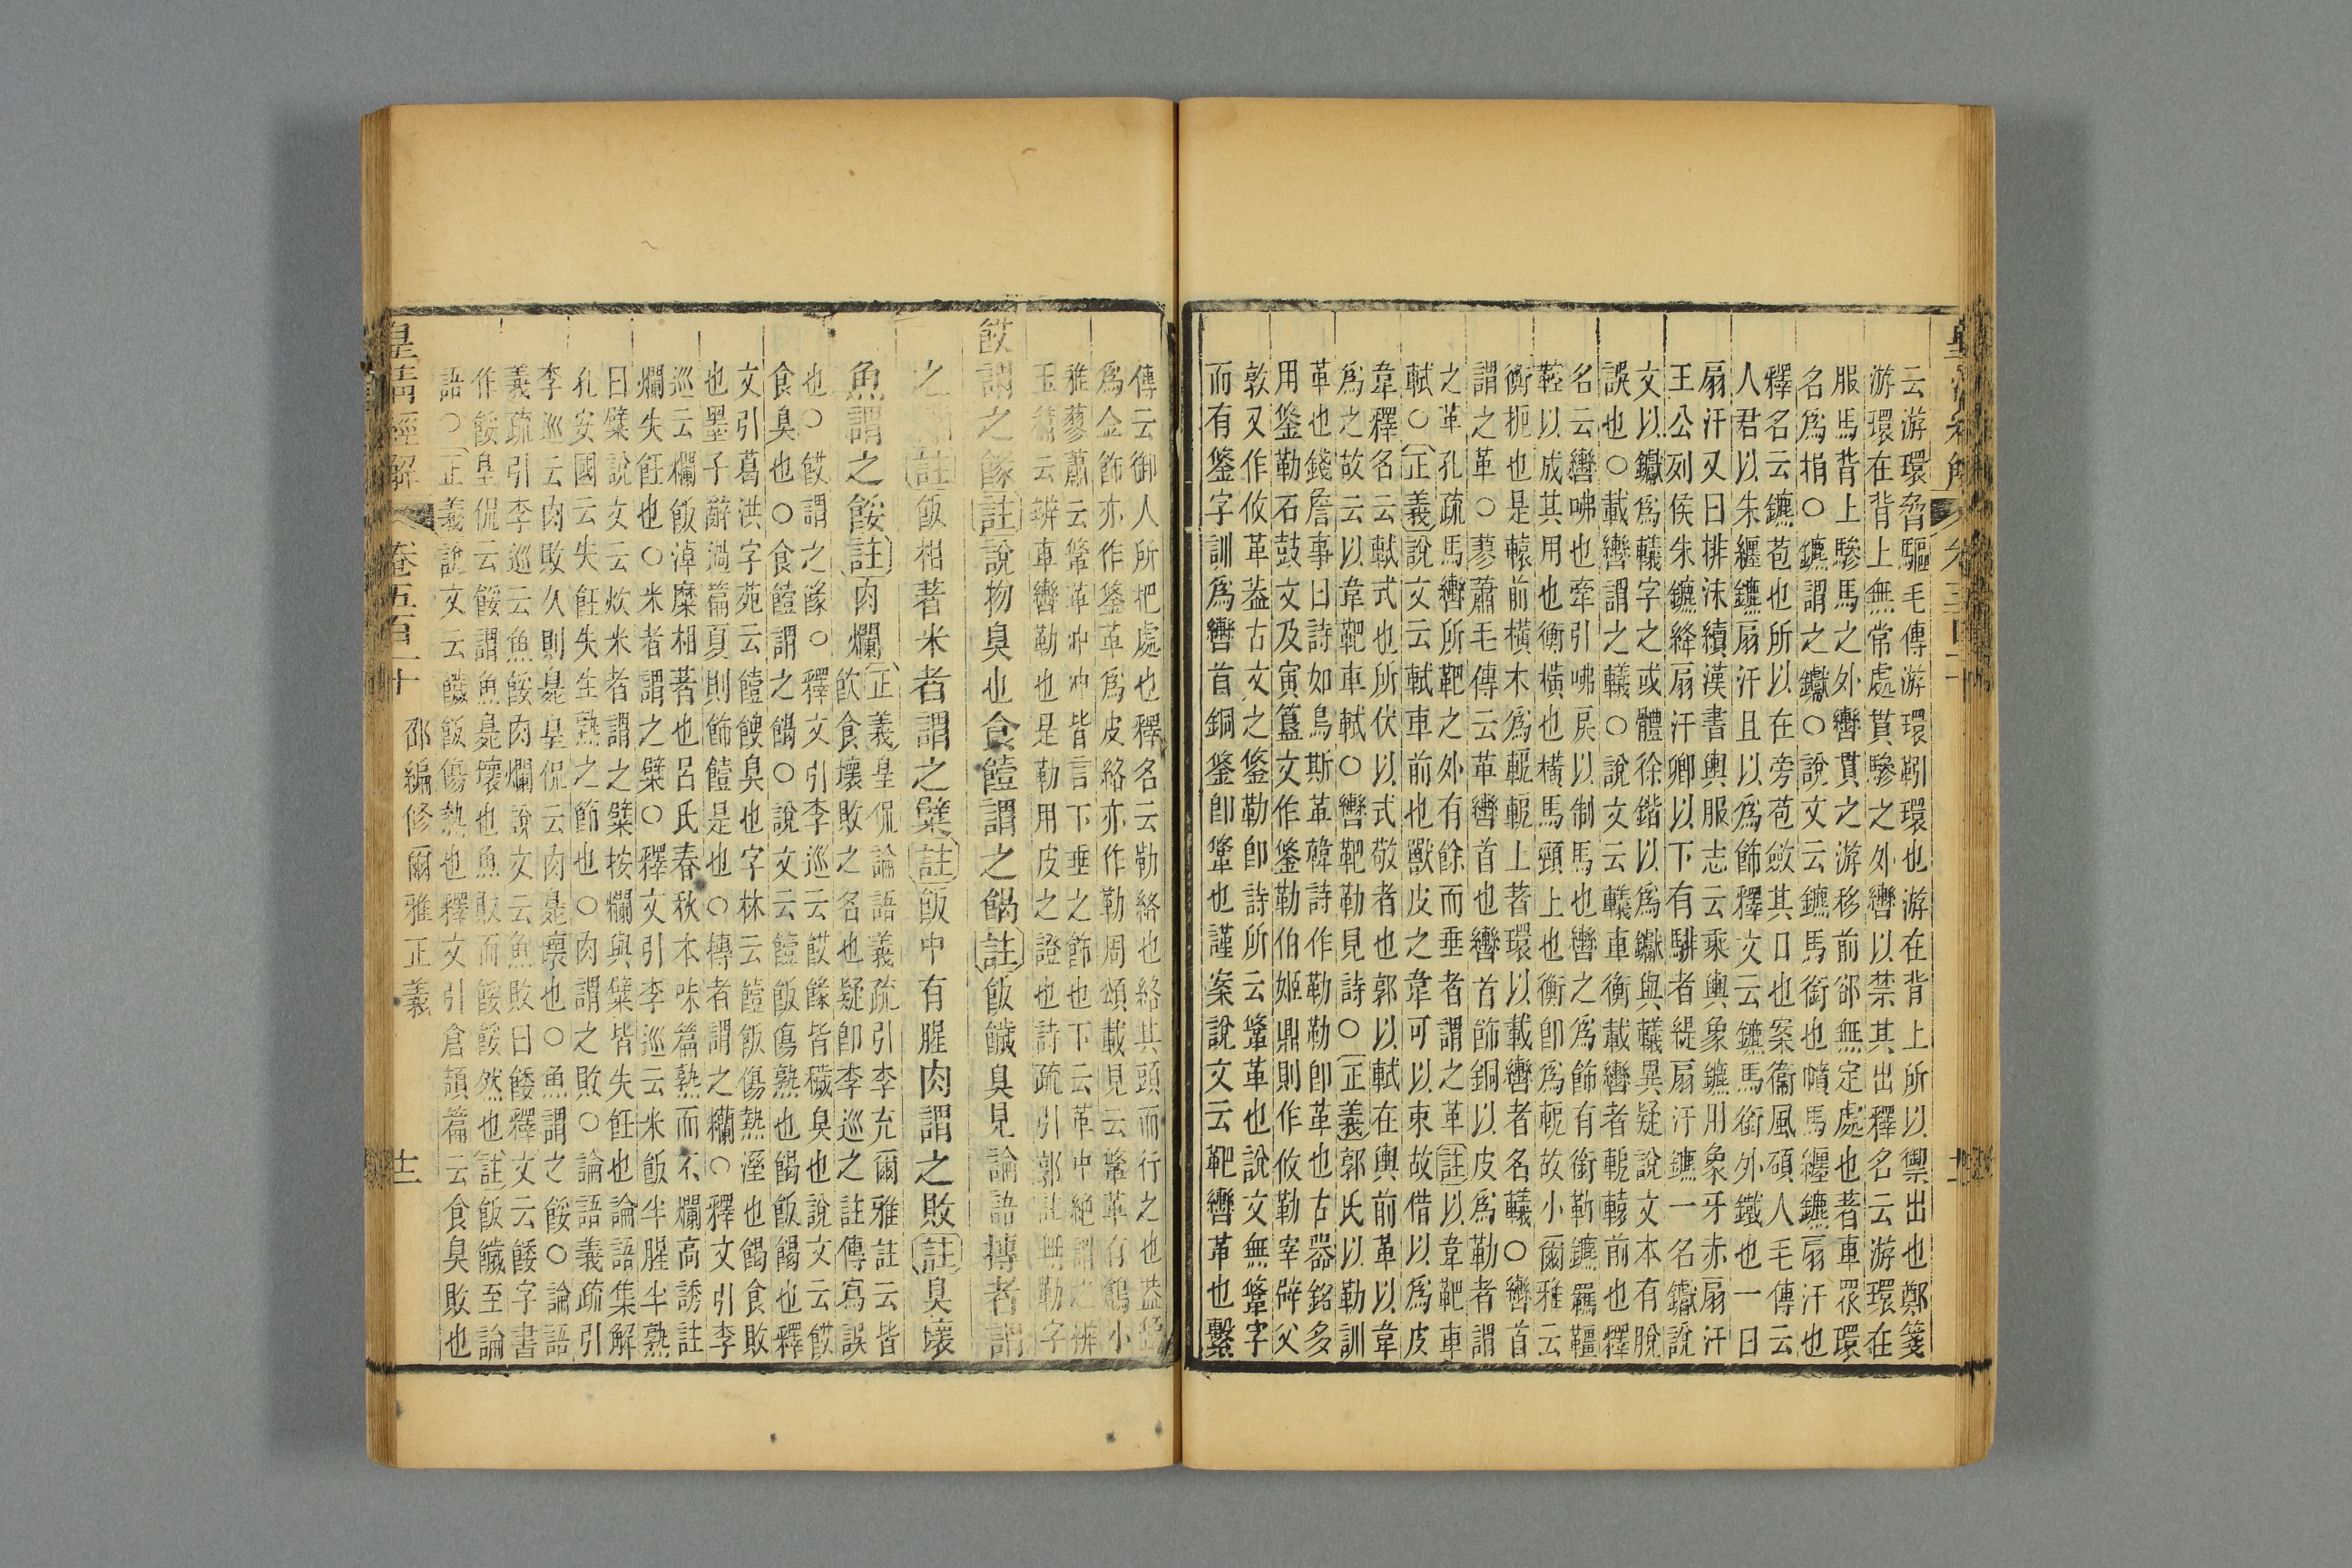 云游環脅驅毛傳游環靷環也游在背上所以禦出也鄭箋
游環在背上無常處貫驂之外轡以禁其出釋名云游環在
服馬背上驂馬之外轡貫之游移前卻無定處也著車衆環
名爲捐○鑣謂之钀○說文云鑣馬銜也幩馬纏鑣扇汗也
釋名云鑣苞也所以在旁苞斂其口也案衞風碩人毛傳云
人君以朱纏鑣扇汗且以爲飾釋文云鑣馬銜外鐵也一曰
扇汗又曰排沫續漢書輿服志云乘輿象鑣用象牙赤扇汗
王公列侯朱鑣絳扇汗卿以下有騑者緹扇汗鑣一名钀說
文以钀爲轙字之或體徐鍇以爲钀與轙異疑說文本有脫
誤也○載轡謂之轙○說文云轙車衡載轡者軶轅前也釋
名云轡咈也牽引咈戾以制馬也轡之爲飾有銜靳鑣羈韁
鞚以成其用也衡橫也橫馬頸上也衡卽爲軶故小爾雅云
衡扼也是轅前橫木爲軶軶上著環以載轡者名轙○轡首
謂之革○蓼蕭毛傳云革轡首也轡首飾銅以皮爲勒者謂
之革孔疏馬轡所靶之外有餘而垂者謂之革註以韋靶車
軾○正義說文云軾車前也獸皮之韋可以束故借以爲皮
韋釋名云軾式也所伏以式敬者也郭以軾在輿前革以韋
爲之故云以韋靶車軾○轡靶勒見詩○正義郭氏以勒訓
革也錢詹事曰詩如鳥斯革韓詩作勒勒卽革也古器銘多
用鋚勒石鼓文及寅簋文作鋚勒伯姬鼎則作攸勒宰辟父
敦又作攸革葢古文之鋚勒卽詩所云鞗革也說文無鞗字
而有鋚字訓爲轡首銅鋚卽鞗也謹案說文云靶轡革也繫
傳云御人所把處也釋名云勒絡也絡其頭而行之也葢
爲金飾亦作鋚革爲皮絡亦作勒周頌載見云鞗革有鶬小
雅蓼蕭云鞗革沖沖皆言下垂之飾也下云革中絕謂之辨
玉篇云辨車轡勒也是勒用皮之證也詩疏引郭註無勒字
餀謂之餯註說物臭也食饐謂之餲註飯饖臭見論語摶者謂
之糷註飯相著米者謂之糪註飯中有腥肉謂之敗註臭壞
魚謂之餒註肉爛正義皇侃論語義疏引李充爾雅註云皆
飲食壞敗之名也疑卽李巡之註傳寫誤
也○餀謂之餯○釋文引李巡云餀餯皆穢臭也說文云餀
食臭也○食饐謂之餲○說文云饐飯傷熟也餲飯餲也釋
文引葛洪字苑云饐餿臭也字林云饐飯傷熱溼也餲食敗
也墨子辭過篇夏則飾饐是也○摶者謂之糷○釋文引李
巡云糷飯淖糜相著也呂氏春秋本味篇熟而不爛高誘註
爛失飪也○米者謂之糪○釋文引李巡云米飯半腥半熟
曰糪說文云炊米者謂之糪按糷與糪皆失飪也論語集解
孔安國云失飪失生熟之節也○肉謂之敗○論語義疏引
李巡云肉敗久則臭皇侃云肉臭壞也○魚謂之餒○論語
義疏引李巡云魚餒肉爛說文云魚敗曰餧釋文云餧字書
作餒皇侃云餒謂魚臭壞也魚敗而餒餒然也註飯饖至論
語○正義說文云饖飯傷熱也釋文引倉頡篇云食臭敗也
皇清經解
卷五百十
邵編修爾雅正義
十二